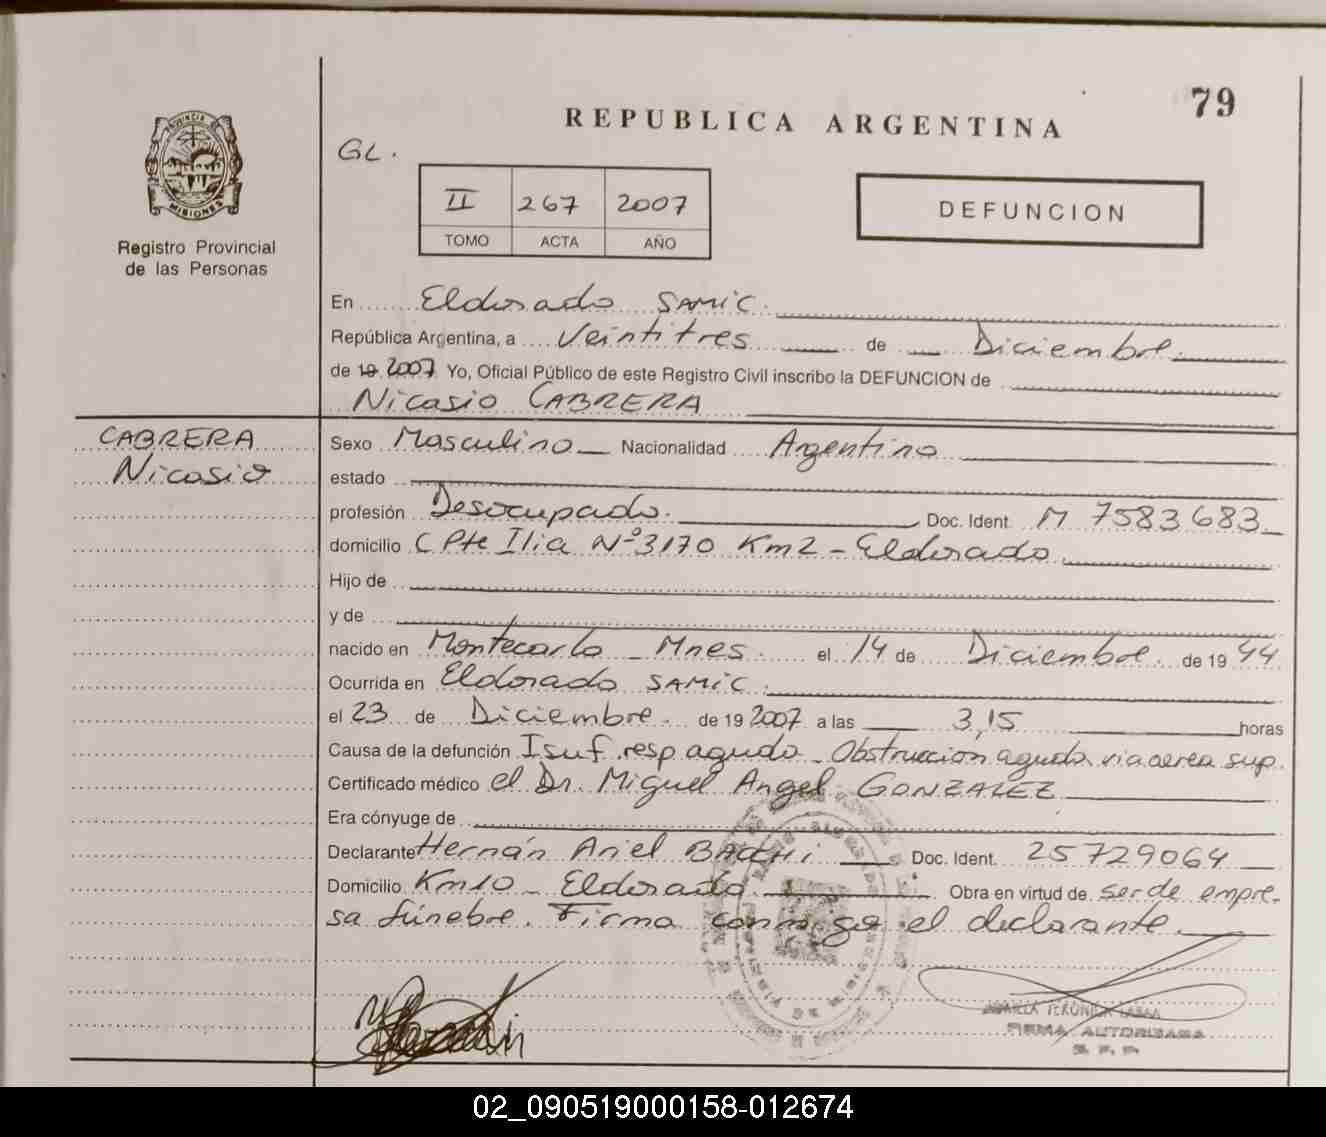 79
REPUBLICA ARGENTINA
GL.
PROVINCIA DE
MISIONES
II 267 2007
TOMO ACTA AÑO
DEFUNCION
Registro Provincial
de las Personas
En Eldorado SAMIC.
República Argentina, a Veintitres de Diciembre.
de 19 2007 Yo, Oficial Público de este Registro Civil inscribo la DEFUNCION de
Nicasio CABRERA
CABRERA
Nicasio
Sexo Masculino Nacionalidad Argentino
estado
profesión Desocupado. Doc. Ident. M 7583683
domicilio C Pte Ilia Nº 3170 Km2 - Eldorado
Hijo de
y de
nacido en Montecarlo - Mnes. el 14 de Diciembre. de 19 44
Ocurrida en Eldorado SAMIC.
el 23 de Diciembre. de 19 2007 a las 3,15 horas
Causa de la defunción Isuf. resp aguda - Obstruccion aguda via aerea sup.
Certificado médico el Dr. Miguel Angel GONZALEZ
Era cónyuge de
Declarante Hernán Ariel Doc. Ident. 25729064
Domicilio Km10 - Eldorado Obra en virtud de ser de empre-
sa fúnebre. Firma conmigo el declarante.
VERONICA
FIRMA AUTORIZADA
02_090519000158-012674